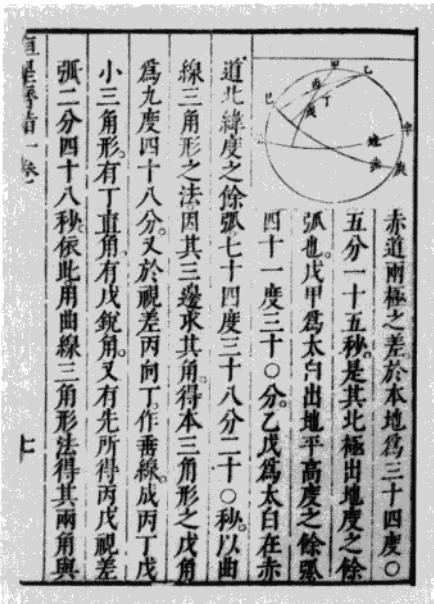 赤道兩極之差。於本地爲三十四度〇
五分一十五秒。是其北極出地度之餘
弧也。戊甲爲太白出地平高度之餘弧
四十一度三十〇分。乙戊爲太白在赤
道北緯度之餘弧。七十四度三十八分二十〇秒。以曲
線三角形之法。因其三邊求其角。得本三角形之戊角
爲九度四十八分。又於視差丙向丁。作垂線。成丙丁戊
小三角形。有丁直角。有戊銳角。又有先所得丙戊視差
弧二分四十八秒。依此。用曲線三角形法。得其兩角與
甲
乙
丙
丁
戊
巳
辛
赤
庚
恒星曆指一卷
七